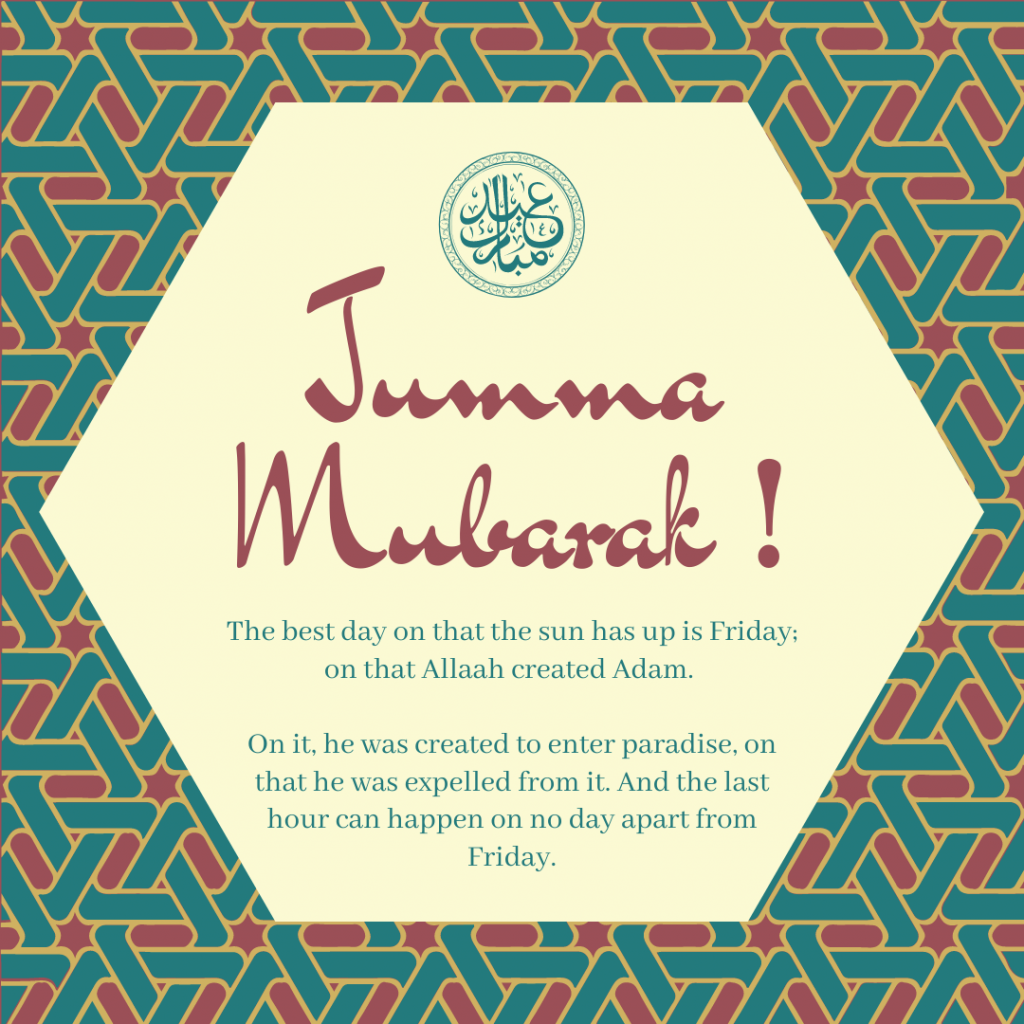 عيد
مبارك
Jumma
Mubarak !
The best day on that the sun has up is Friday;
on that Allaah created Adam.
On it, he was created to enter paradise, on
that he was expelled from it. And the last
hour can happen on no day apart from
Friday.